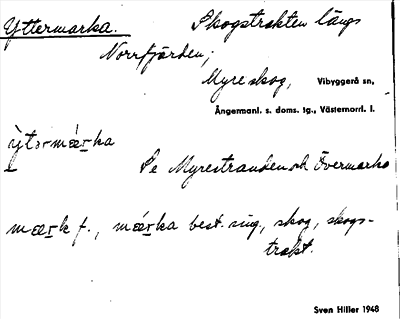 Yttermarka. Skogstrakten längs
Norrfjärden;
Myreskog, Vibyggerå sn,
Ångermanl. s. doms. tg., Västernorrl. l.
ỳtər-mǽrka
Se Myrestranden och Övermarka
mærk f., mǽrka best. sing., skog, skogs-
trakt.
Sven Hiller 1948